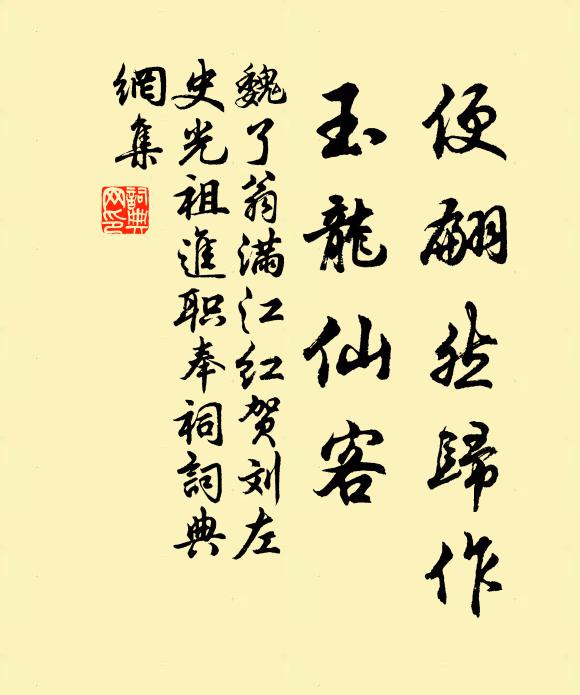 便翩然歸作
玉龍仙客
魏了翁满江红贺刘左
史光祖進职奉祠詞典
網集
詞典
网印